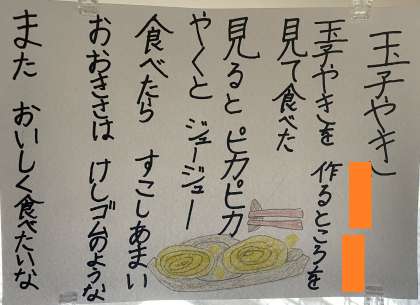 玉子やき
玉子やきを 作るところを
見て食べた
見ると ピカピカ
やくと ジュージュー
食べたら すこしあまい
おおきさは けしゴムのような
また おいしく食べたいな